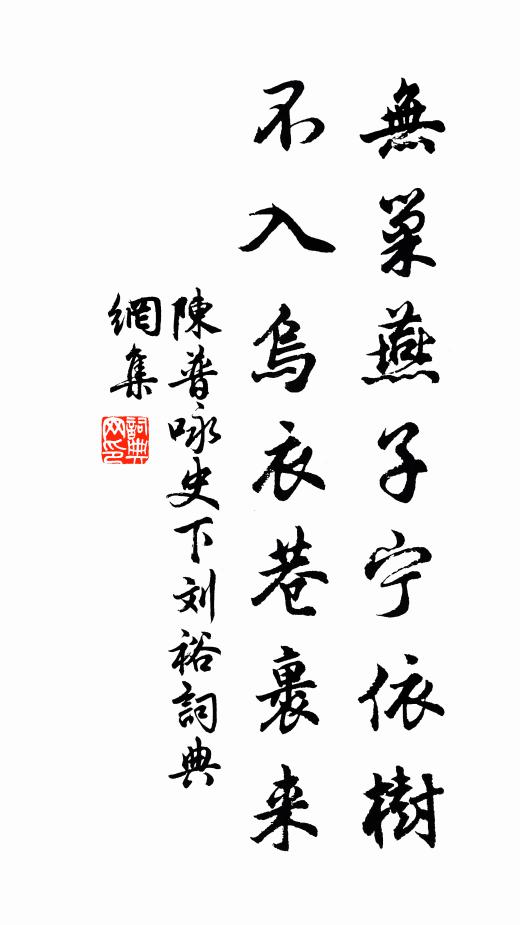 無巢燕子宁依樹
不入烏衣巷裏来
陳普咏史下刘裕詞典
網集
詞典網印